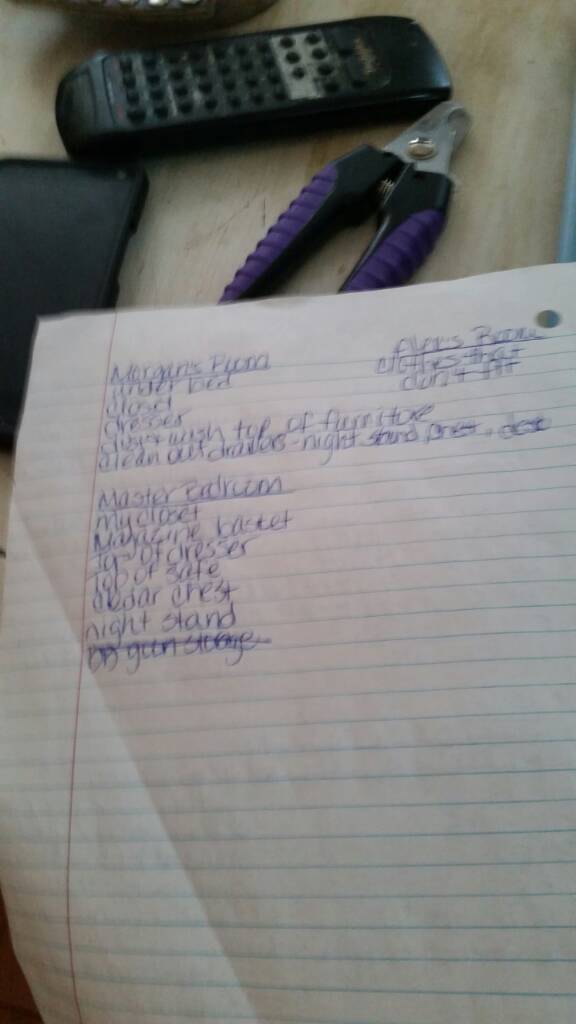 Morgan's Room
under bed
closet
dresser
dust + wash top of furniture
clean out drawers - night stand, chest, desk
Room
clothes that
don't fit
Master Bedroom
my closet
Magazine basket
top of dresser
top of safe
cedar chest
night stand
BB gun storage